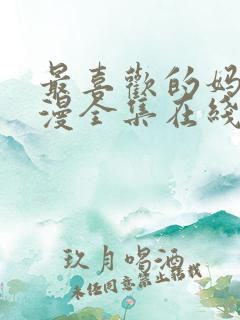 最喜歡的妈
漫全集在綫
玖月喝酒
未经同意禁止转载